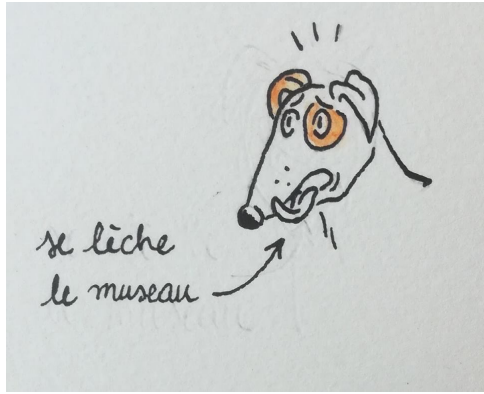 se lèche
le museau